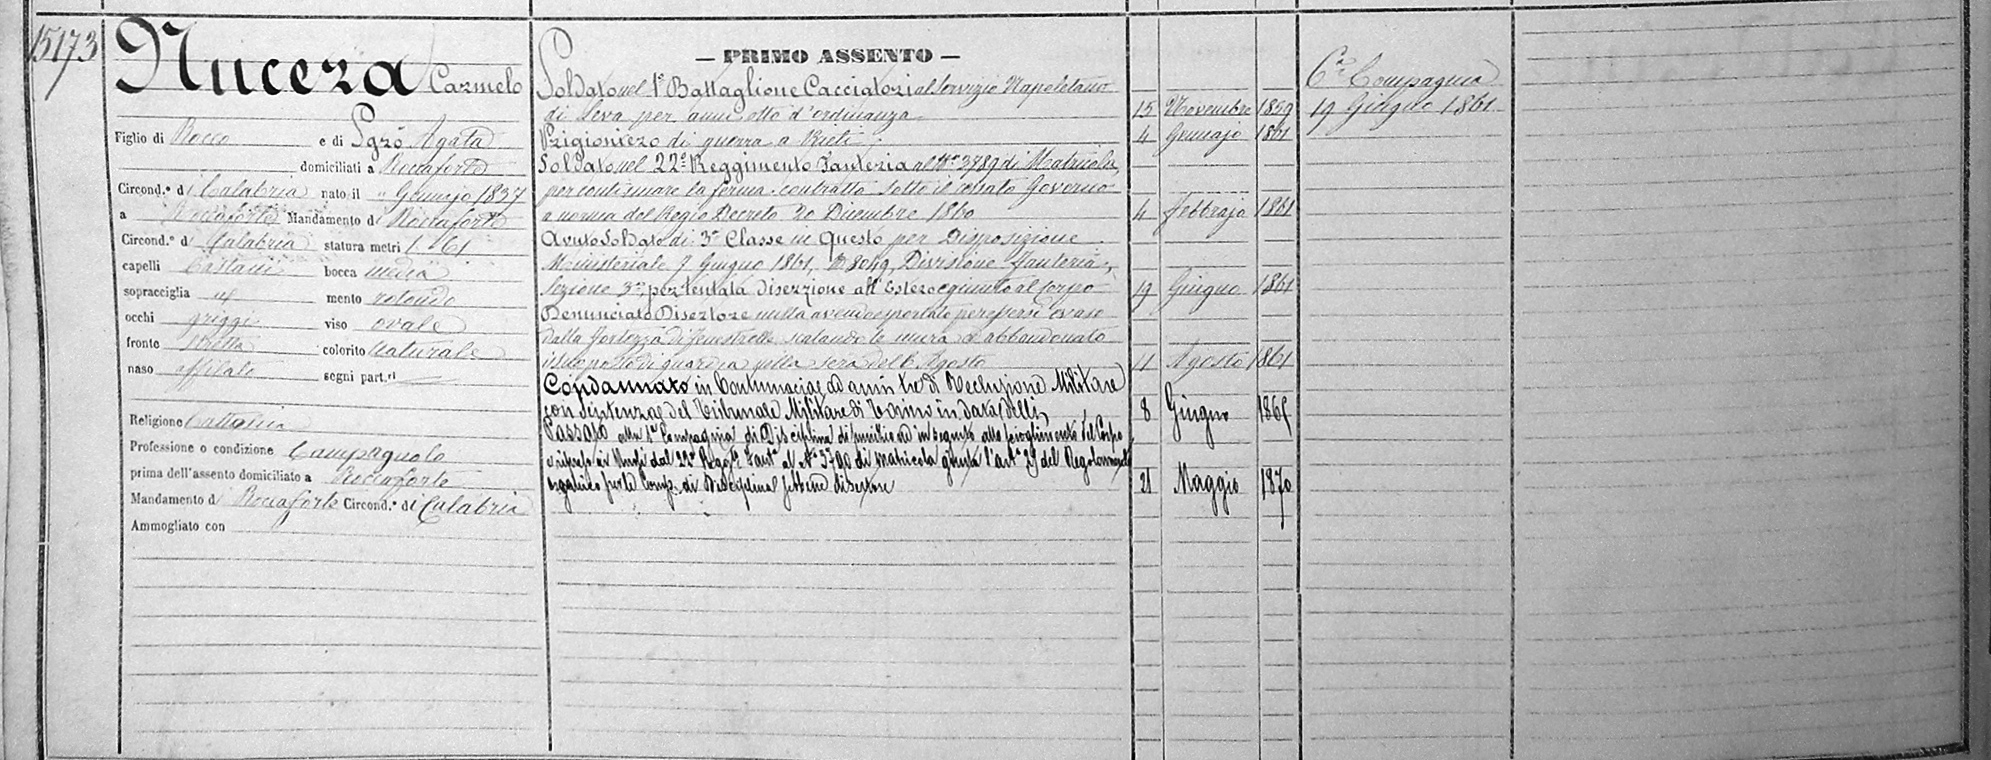 15173
Nucera Carmelo
Figlio di Rocco e di Sgrò Agata
domiciliati a Roccaforte
Circond.º di Calabria nato il " Gennajo 1837
a Roccaforte Mandamento di Roccaforte
Circond.º di Calabria statura metri 1" 61
capelli Castani bocca media
sopracciglia id mento rotondo
occhi griggi viso ovale
fronte stretta colorito naturale
naso affilato segni part.ri
Religione Cattolica
Professione o condizione Campagnolo
prima dell'assento domiciliato a Roccaforte
Mandamento di Roccaforte Circond.º di Calabria
Ammogliato con
— PRIMO ASSENTO —
Soldato nel 1º Battaglione Cacciatori al servizio Napoletano
di Leva per anni otto d'ordinanza 15 Novembre 1859
Prigioniero di guerra a Rieti 4 Gennajo 1861
Soldato nel 22º Reggimento Fanteria al Nº 3789 di Matricola,
per continuare la ferma contratta sotto il cessato Governo
a norma del Regio Decreto 20 Dicembre 1860 4 Febbrajo 1861
Avuto Soldato di 3ª Classe in Questo per Disposizione
Ministeriale 7 Giugno 1861, Nº 8049, Divisione Fanteria,
Sezione 3ª, per tentata diserzione all'Estero e giunto al Corpo 19 Giugno 1861
Denunciato Disertore nulla avendo esportato per essersi evaso
dalla Fortezza di Fenestrelle scalando le mura ed abbandonato
il suo posto di guardia nella sera del 6 Agosto 11 Agosto 1861
Condannato in Contumacia ad anni tre di Reclusione Militare
con Sentenza del Tribunale Militare di Torino in data delli 8 Giugno 1865
Passato alla 1ª Compagnia di Disciplina di punizione in seguito allo scioglimento del Corpo
e ripreso in Ruoli dal 22º Regg.to Fant.ª al Nº 3790 di matricola giusta l'art.º 29 del Regolamento
organico per le Comp. di Disciplina sebbene disertore 21 Maggio 1870
6ª Compagnia
19 Giugno 1861